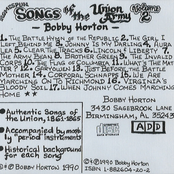 HOMESPUN
SONGS of the Union Army Volume 2
-Bobby Horton-
1. The Battle Hymn of the Republic 2. The Girl I
Left Behind Me 3. Johnny Is My Darling 4. Aura
Lea 5. Clear the Tracks 6. Lincoln & Liberty 7. The
Army Bean 8. Brother Green 9. The Invalid
Corps 10. The Flag of Columbia 11. What's the Mat-
ter? 12. Garyowen 13. Just Before the Battle,
Mother 14. Corporal Schnapps 15. We Are
Marching On To Richmond 16. Virginia's
Bloody Soil 17. When Johnny Comes Marching
Home
• Authentic Songs of
the Union, 1861-1865
• Accompanied by most-
ly "period" instruments
• Historical background
for each song
© ℗ Bobby Horton 1990
Bobby Horton
3430 Sagebrook Lane
Birmingham, AL 35243
ADD
© ℗ 1990 Bobby Horton
ISBN 1-882604-20-2